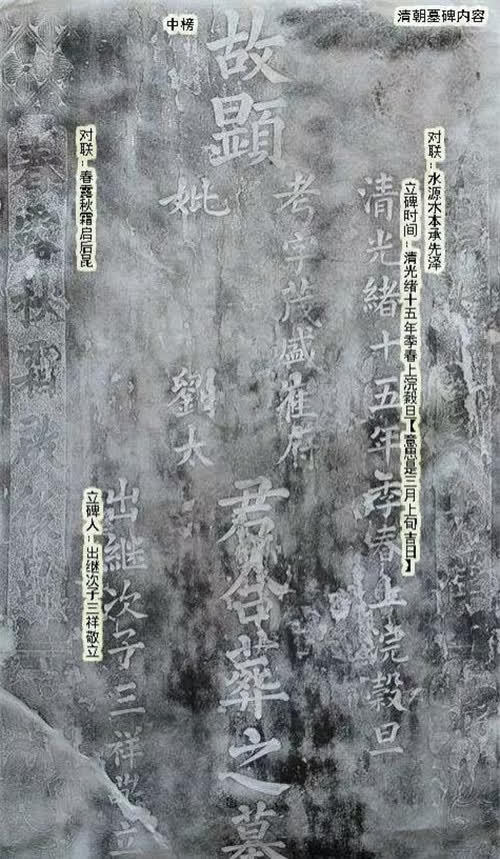 清朝墓碑内容
中榜
对联：水源木本承先泽
立碑时间：清光绪十五年季春上浣榖旦【意思是三月上旬吉日】
清光緒十五年季春上浣榖旦
故顯
考字茂盛崔府
妣 劉太
君合葬之墓
出继次子三祥敬立
立碑人：出继次子三祥敬立
对联：春露秋霜启后昆
春露秋霜